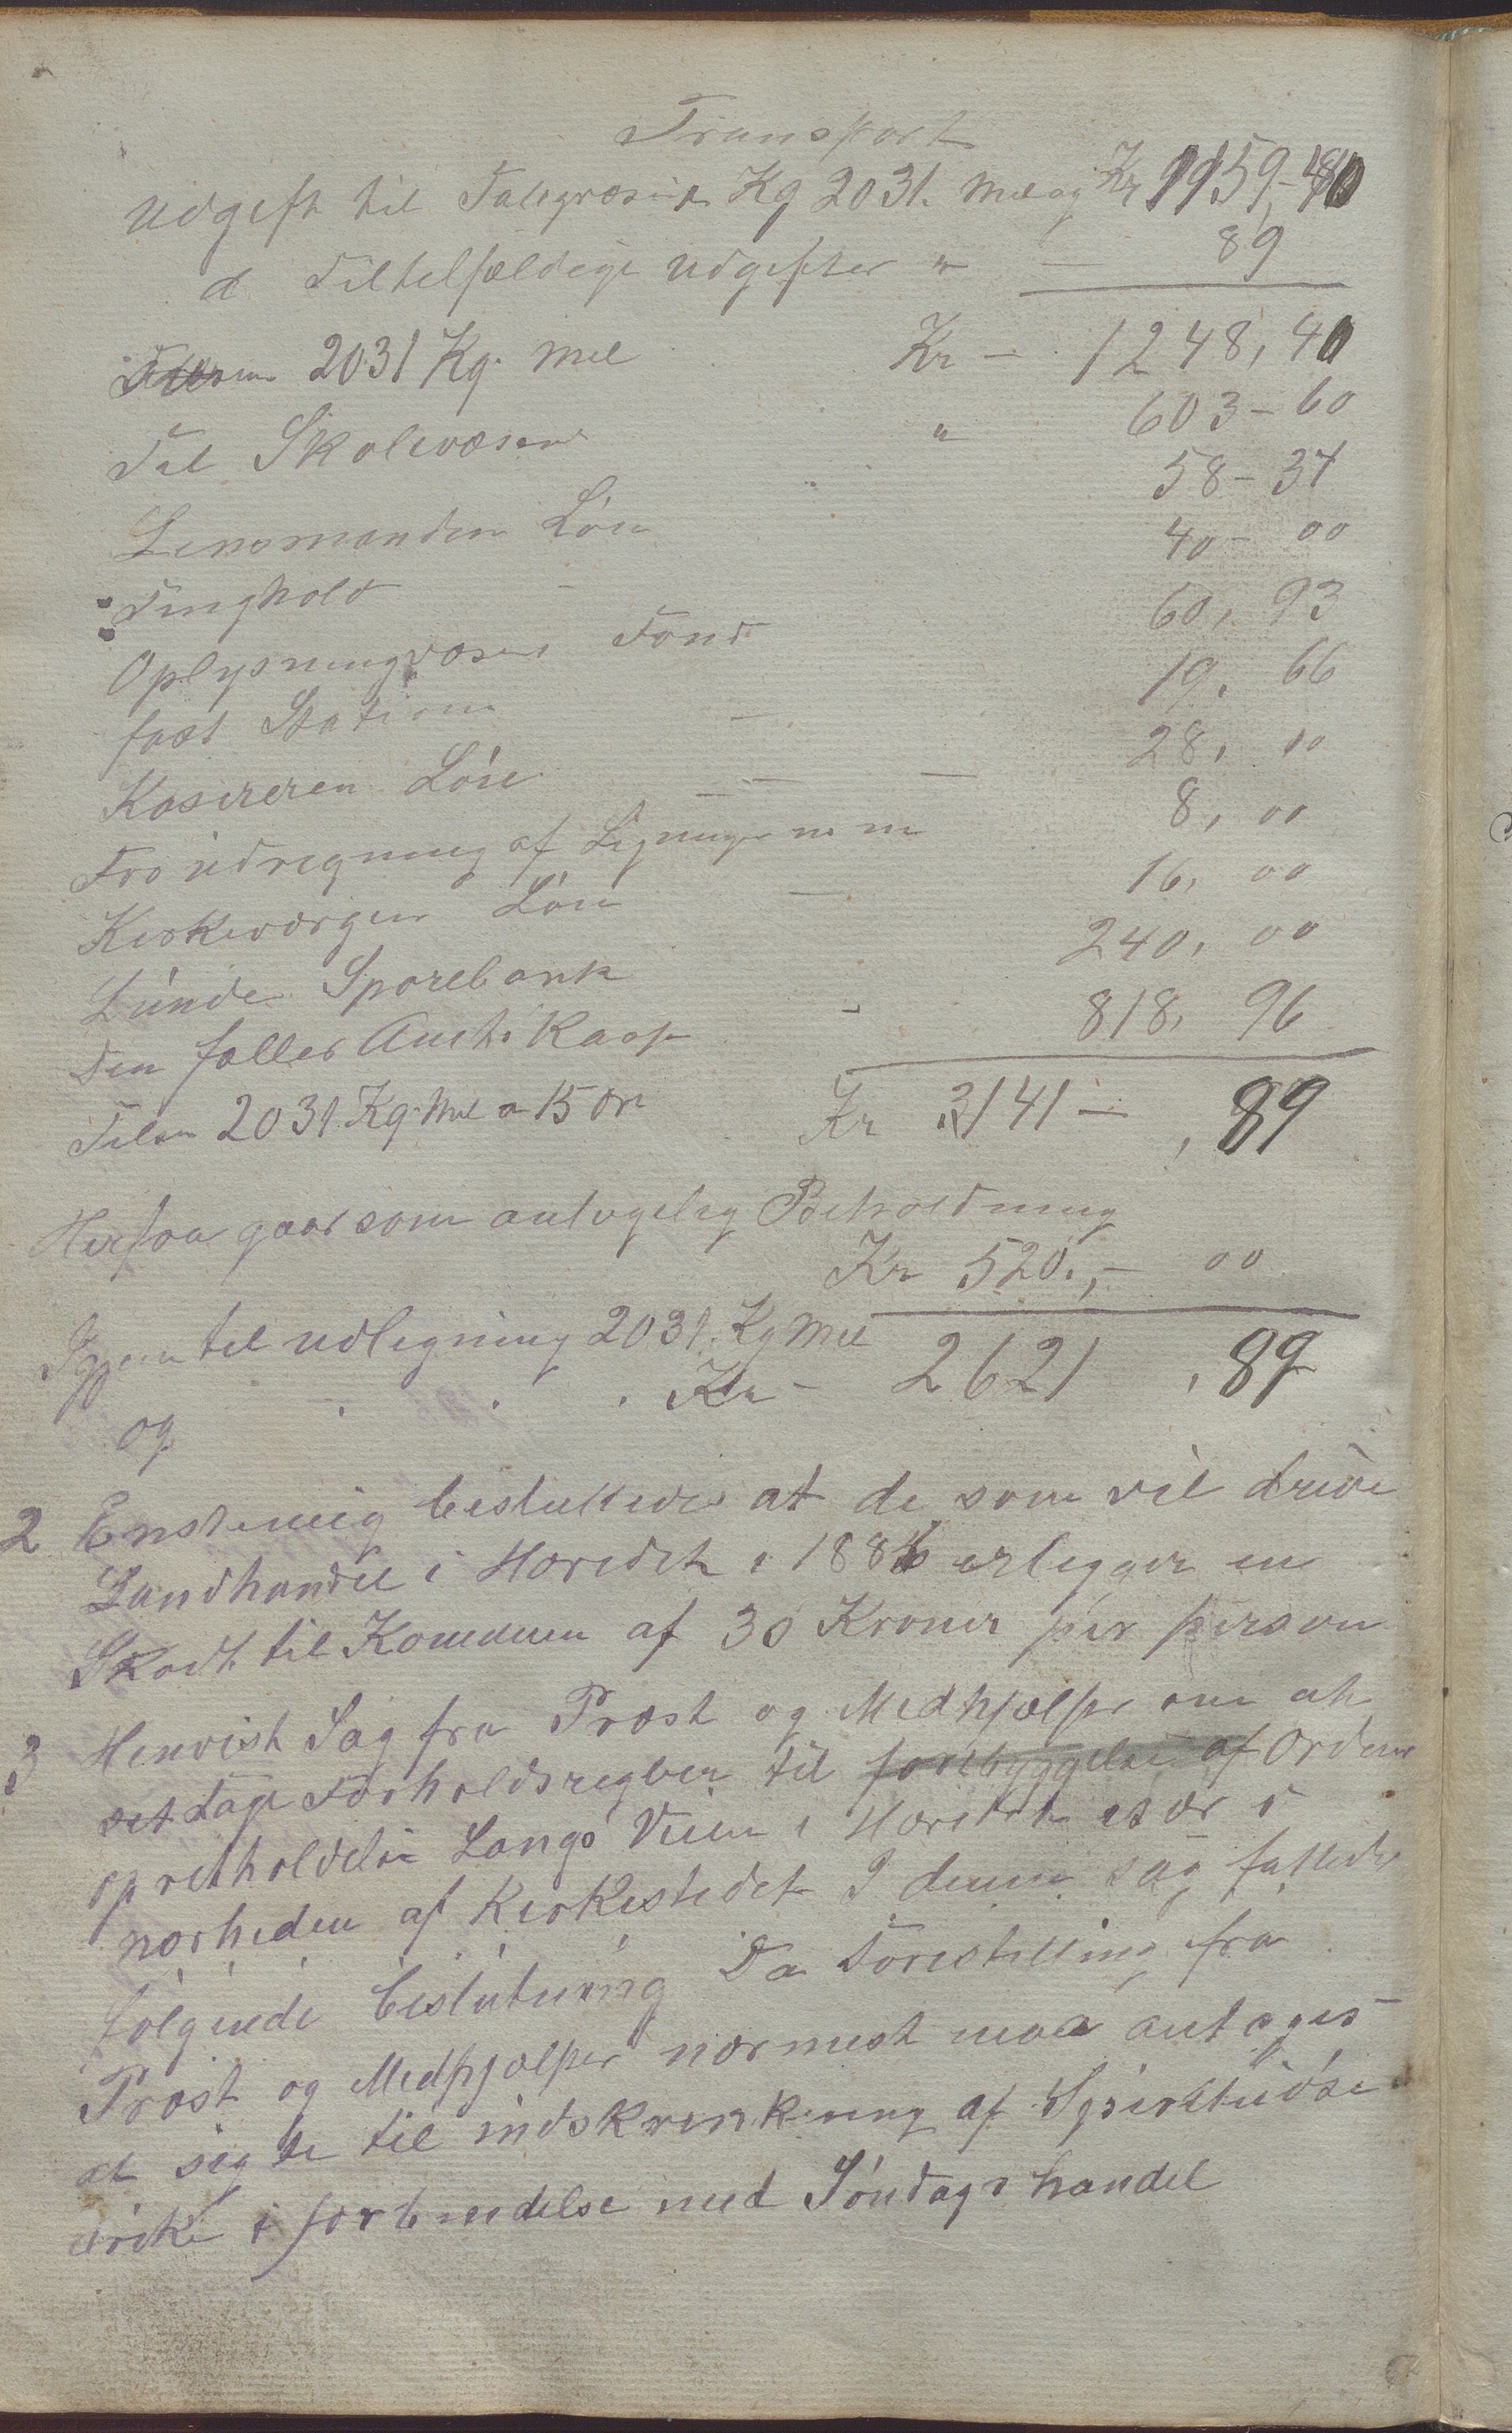 Transport
Udgift til Fatigvæsenet Kg 2031. Mel og Kr 1159,40
a Tiltelfældige udgifter " — 89
Tilsam 2031 Kg. Mel Kr — 1248,40
Til Skolevæsen " 603-60
Lensmanden Løn 58-34
Tinghold 40-00
Oplysningvæsens Fond 60,93
fast Station 19,66
Kasereren Løn 28,00
For udregning af Ligninger m m 8,00
Kirkeværgen Løn 16,00
Lunde Sparebank 240,00
Den fælles Amts Kasse 818,96
Tilsm 2031 Kg. Mel a 15 Øre Kr 3141 — ,89
Herfra gaar som antagelig Beholdning
Kr 520,- 00
Igjen til udligning 2031. Kg Mel
og Kr - 2621 ,89
2 Enstemig besluttedes at de som vil drive
Landhandel i Heredet i 1886 erlegger en
Skadt til Kommunen af 30 Kroner per person
3 Henvist Sag fra Præst og Medhjælper om at
æt tage Forholdsregler til forebyggelse af Ordens
opretholdelse Langs Veien i Heredet især i
nærheden af Kirkestedet I denne sag fattedes
følgende beslutning Da Forestilling fra
Præst og Medhjælper nærmest maa antages
at sigte til indskrenkning af Spirituøse
drike i forbindelse med Søndags handel